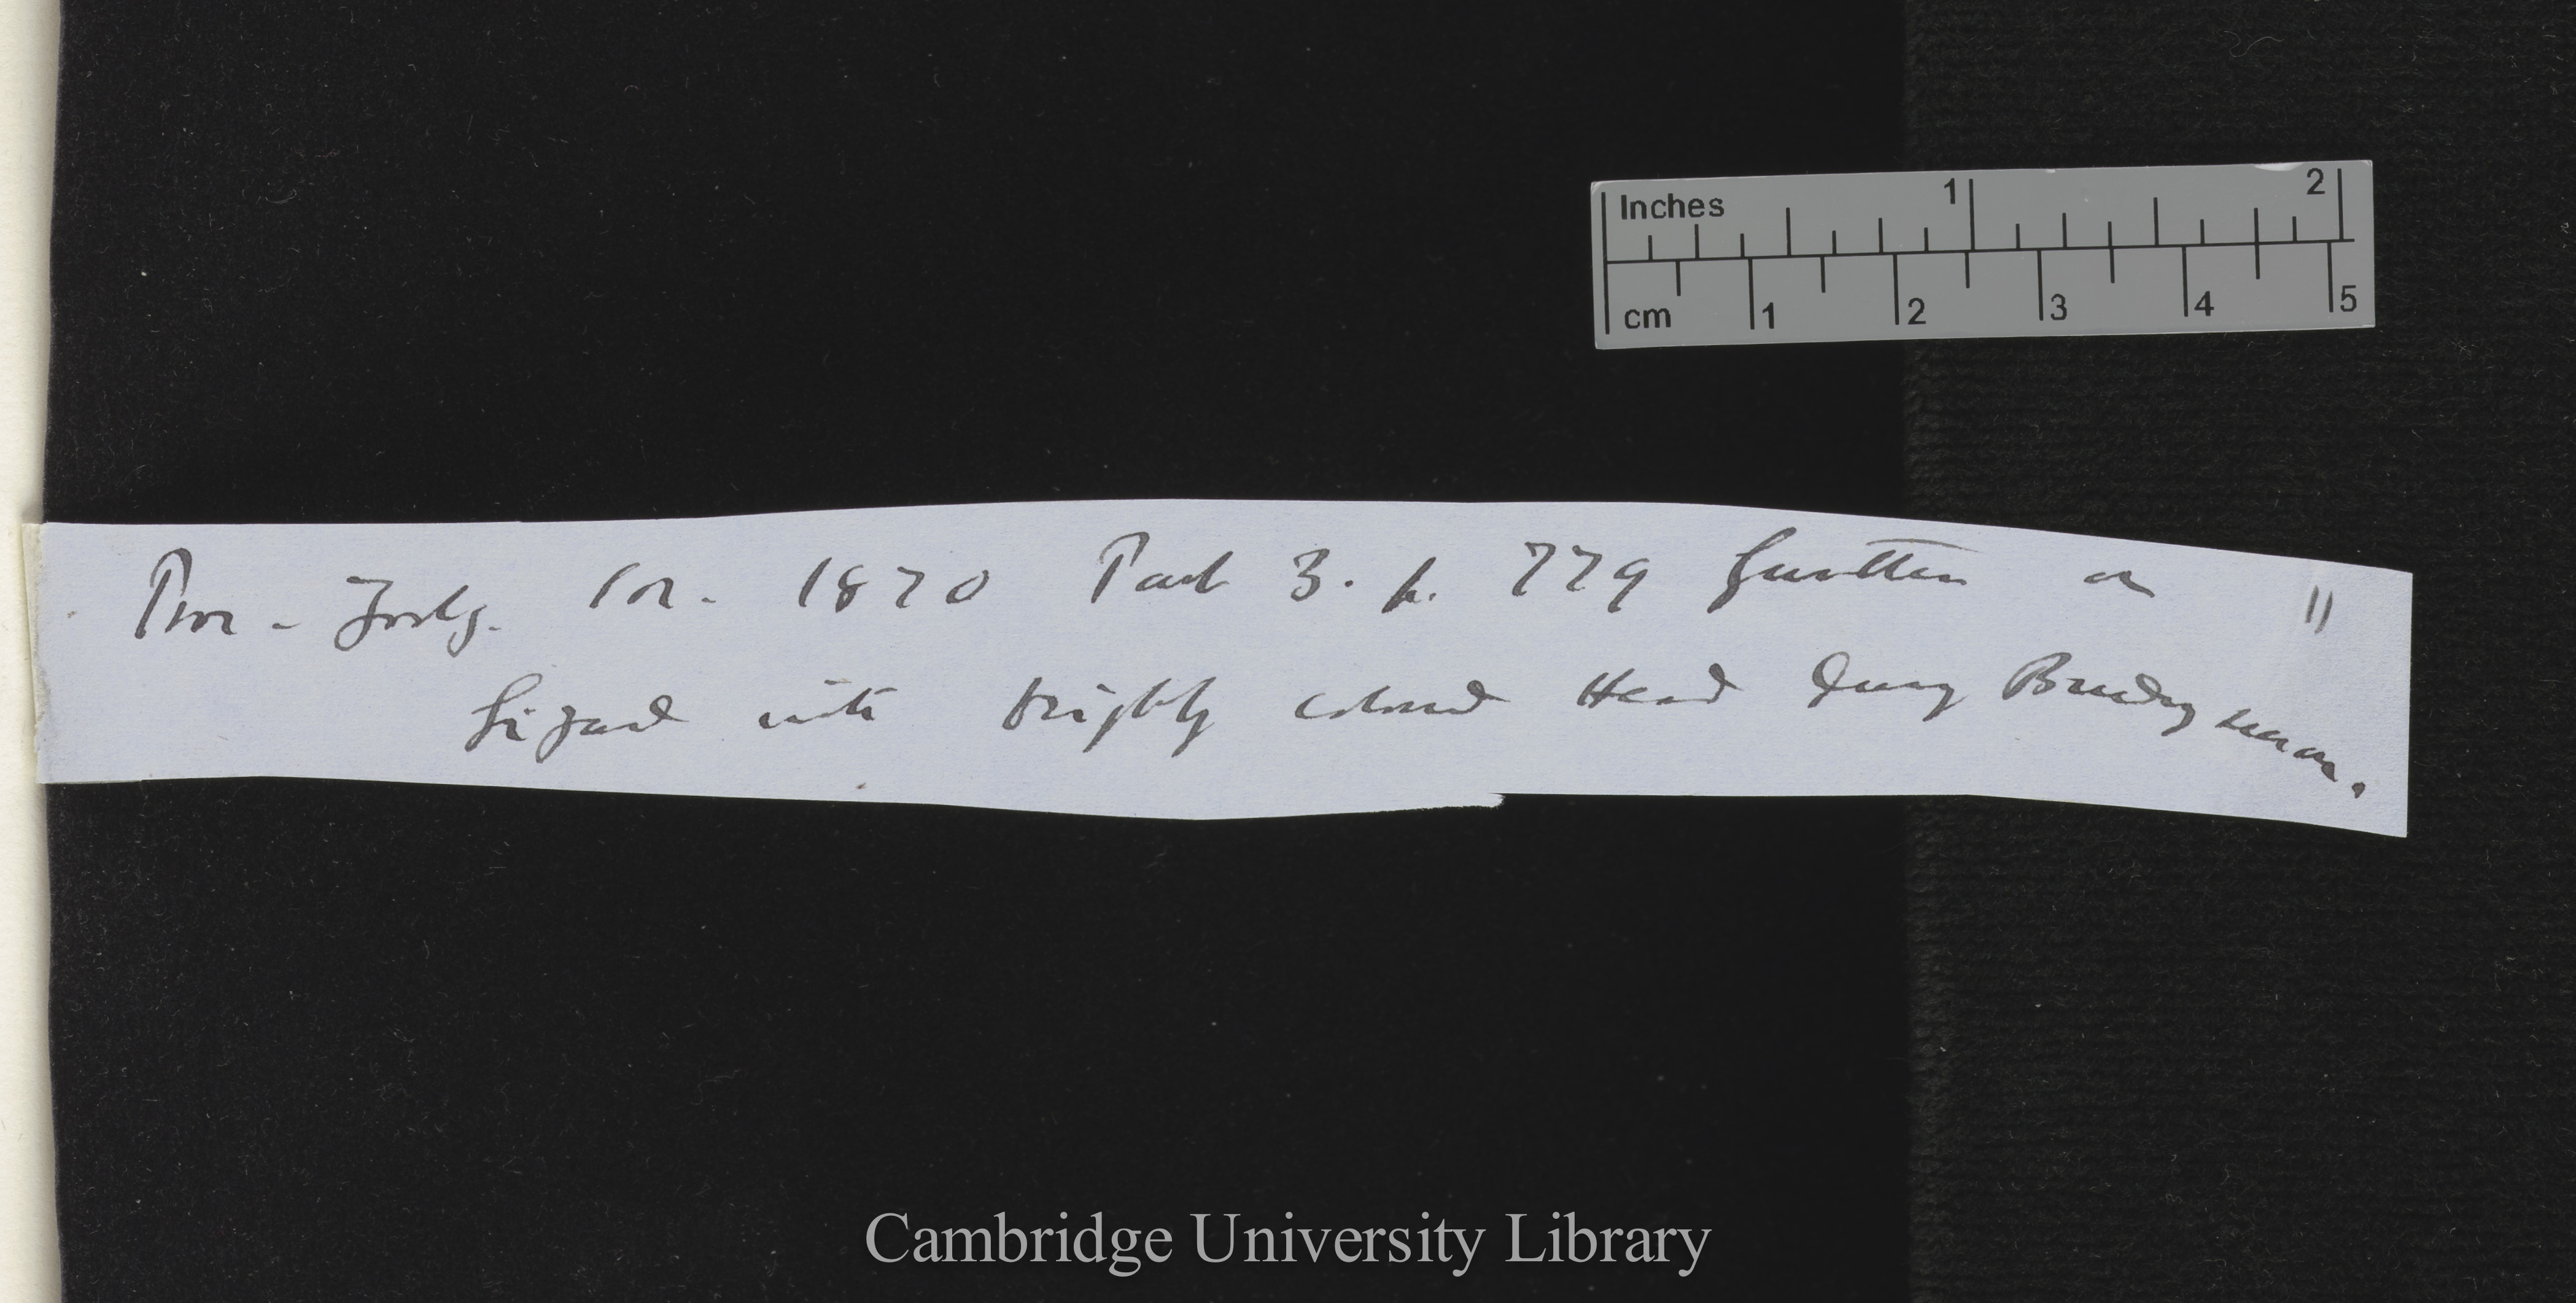 Inches 1 2
cm 1 2 3 4 5
Proc - Zoolg. Soc. 1870 Part 3. p. 779 Gunther on
11
Lizard with brightly coloured Head during Breeding season.
Cambridge University Library